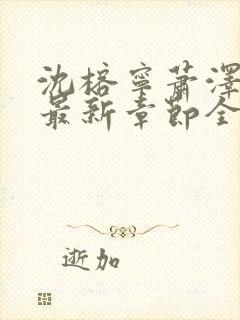 沈榕寧蕭澤
最新章節全
逝加